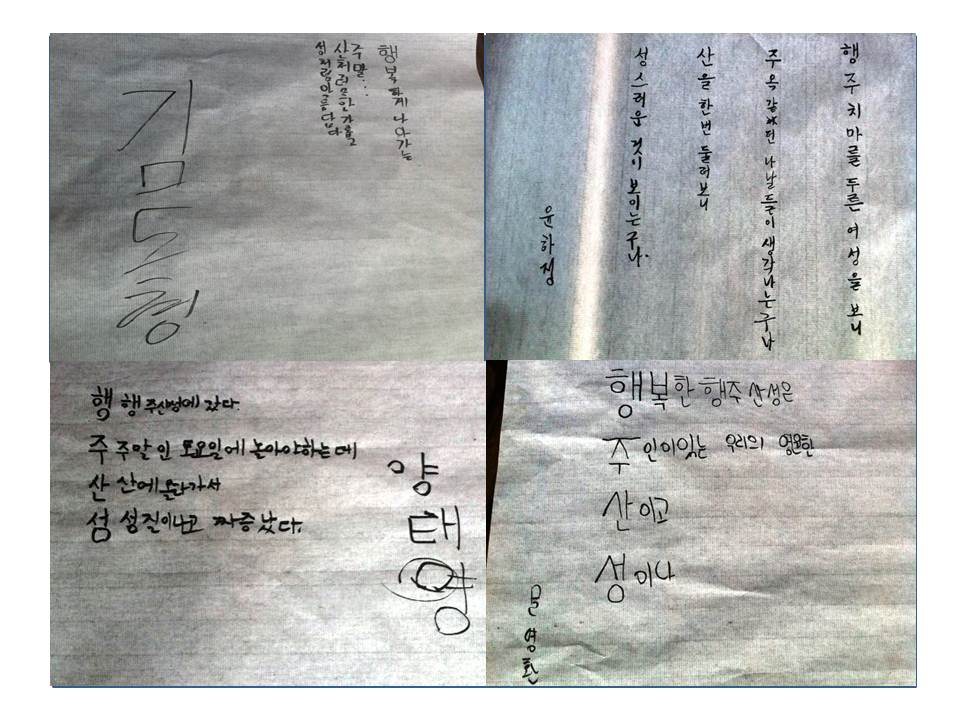 행복하게 나아가는
주말...
산처럼
성처럼 아름답다
김도형
행주치마를 두른 여성을 보니
주옥 같았던 나날들이 생각나는구나
산을 한번 둘러보니
성스러운 것이 보이는구나.
윤하정
행 행주산성에 갔다.
주 주말인 토요일에 놀아야하는데
산 산에올라가서
성 성질이나고 짜증났다.
양태
행복한 행주산성은
주인이있는 우리의 영원한
산이고
성이나
문영환